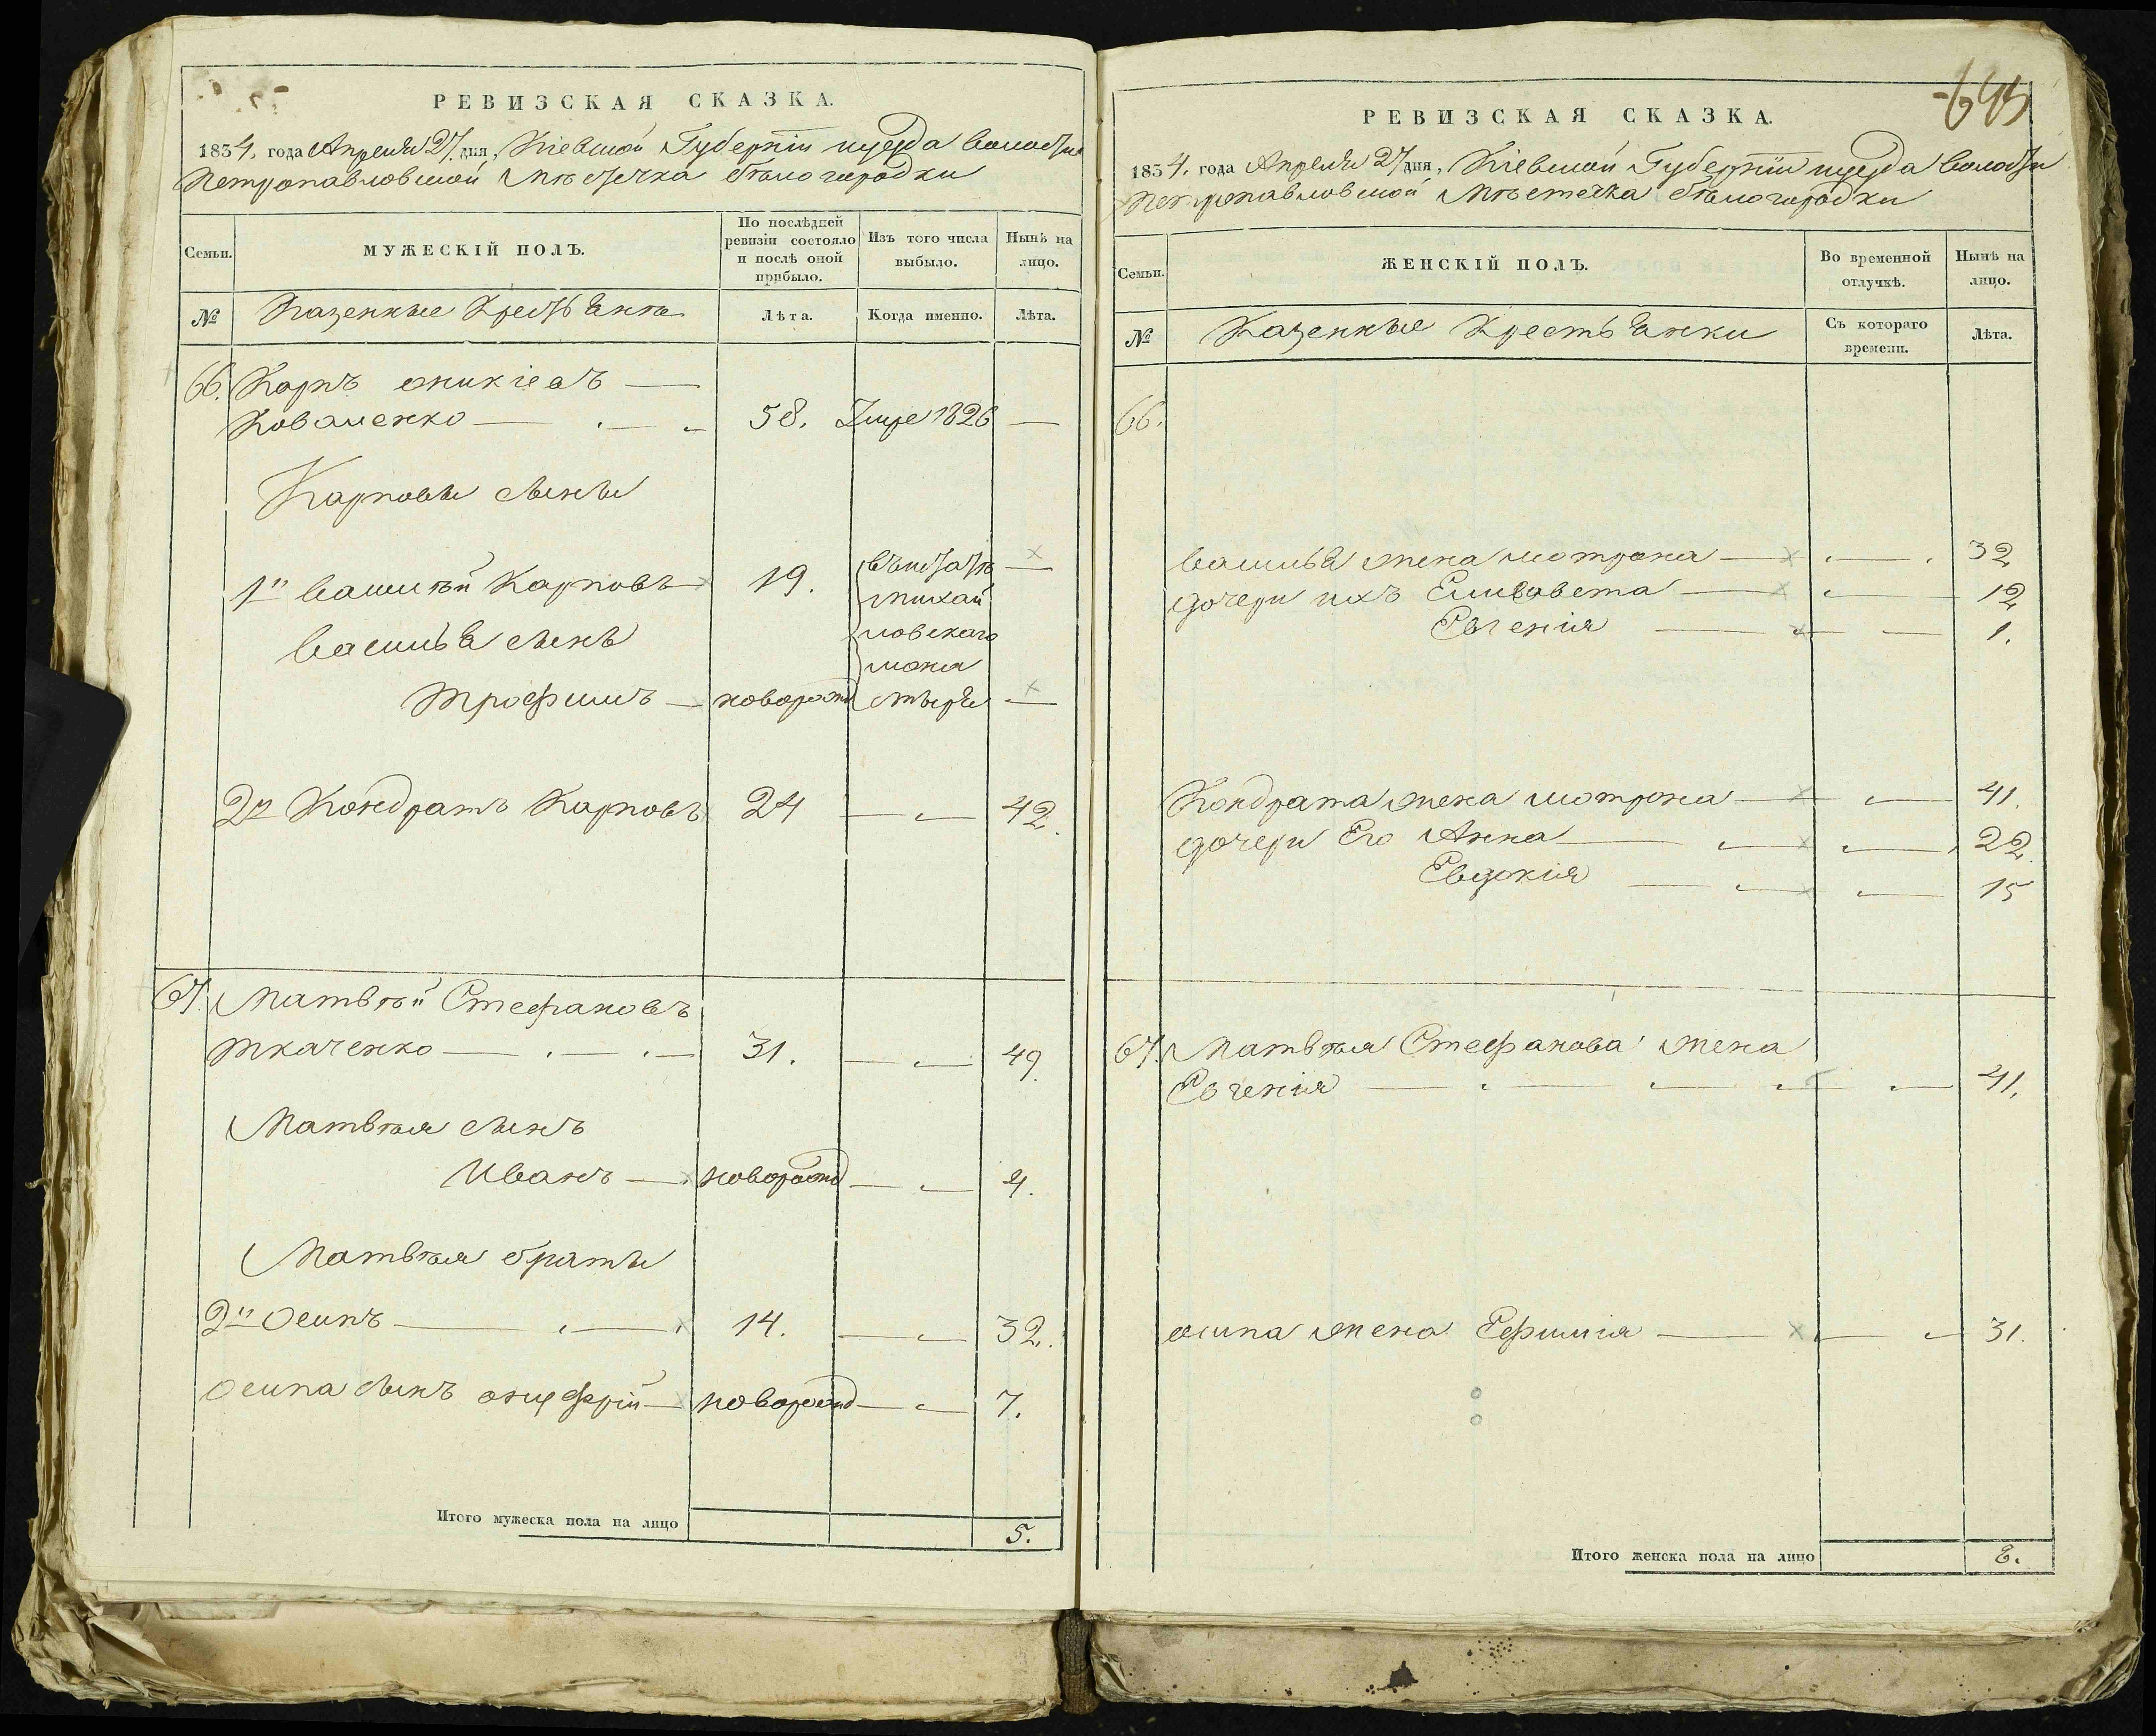 РЕВИЗСКАЯ СКАЗКА.
1834. года Апреля 27. дня, Кіевской Губерніи и уезда волости
Петропавловской мѣстечка Бѣлогородки
Семьи.
МУЖЕСКІЙ ПОЛЪ.
По послѣдней ревизіи состояло и послѣ оной прибыло.
Изъ того числа выбыло.
Нынѣ на лицо.
№
Казенные Крестьяне
Лѣта.
Когда именно.
Лѣта.
66. Карпъ оникіевъ
Коваленко 58. Умре 1826
Карповы сыны
1й василій Карповъ 19.
михай
ловскаго
василья сынъ
мона
трофимъ новорожд стыря
2й Кондратъ Карповъ 24 42.
67. Матвѣй Стефановъ
ткаченко 31. 49.
Матвѣя сынъ
Иванъ новорожд 4.
Матвѣя браты
2й Осипъ 14. 32.
Осипа сынъ онуфрій новорожд 7.
Итого мужеска пола на лицо 5.
645
РЕВИЗСКАЯ СКАЗКА.
1834. года Апреля 27 дня, Кіевской Губерніи и уезда волости
Петропавловской Мѣстечка Бѣлогородки
Семьи.
ЖЕНСКІЙ ПОЛЪ.
Во временной отлучкѣ.
Нынѣ на лицо.
№
Казенные Крестьянки
Съ котораго времени.
Лѣта.
66.
василья жена мотрона 32
дочери ихъ Елисавета 12
Евгенія 1.
Кондрата жена мотрона 41.
дочери Его Анна 22.
Евдокія 15
67. Матвѣя Стефанова жена
Евгенія 41.
осипа жена Ефимія 31.
Итого женска пола на лицо 8.